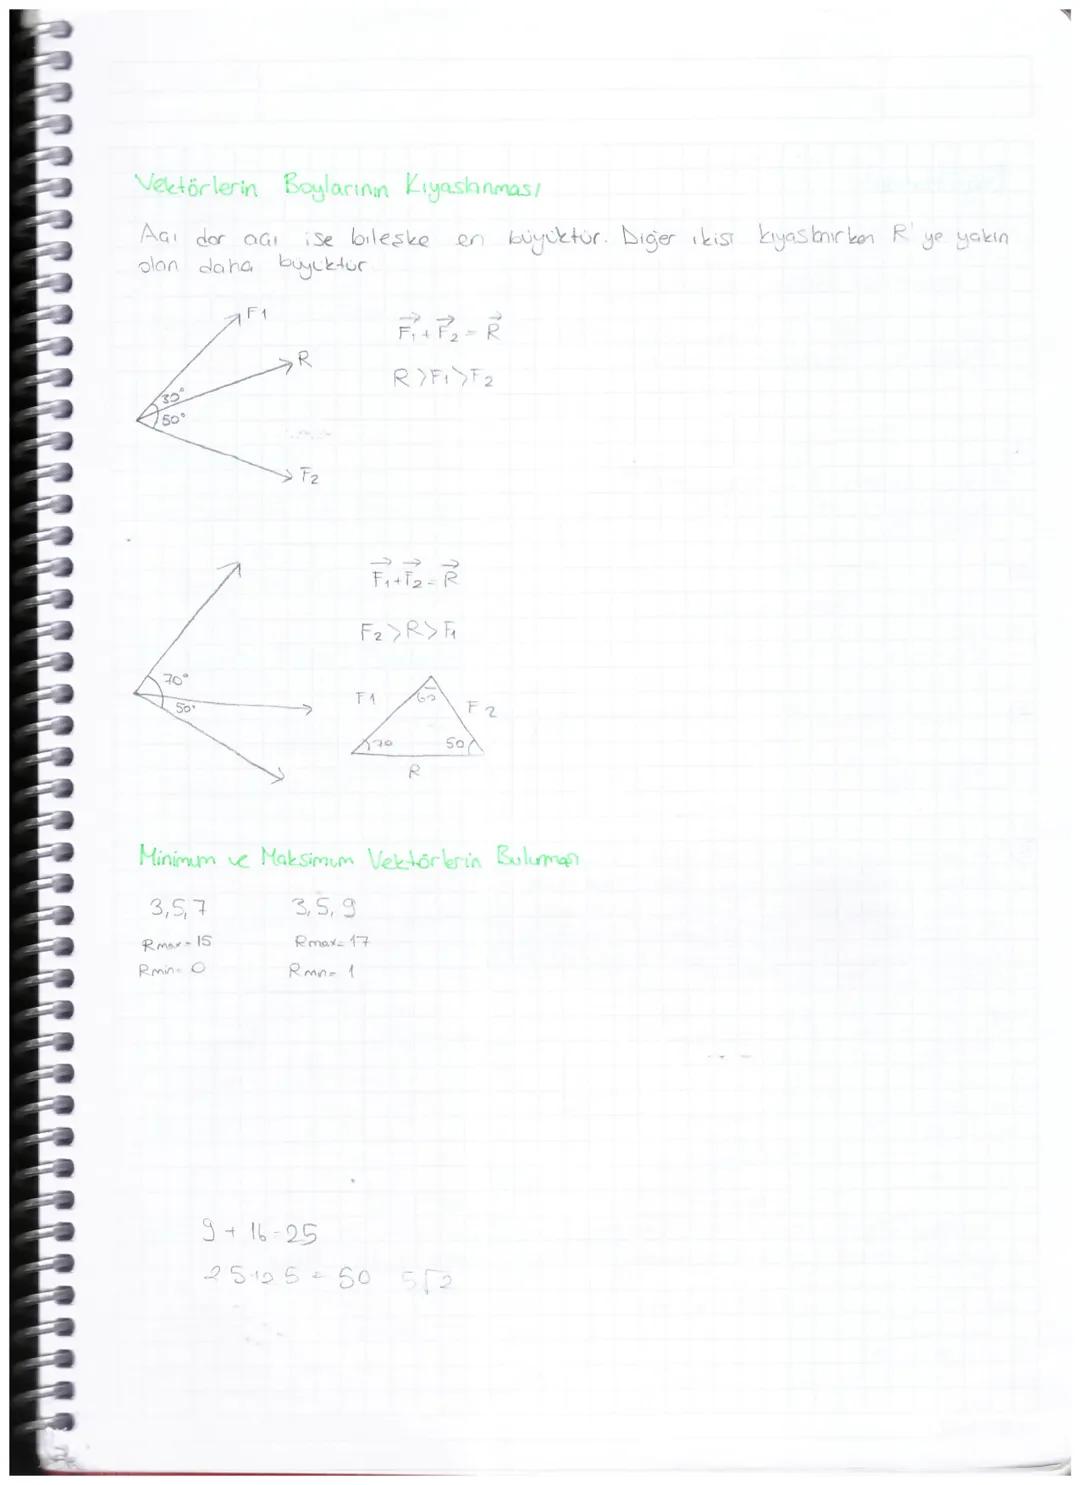 Vektörlerin Boylarının Kıyaslanması
Açı dar açı ise bileşke en büyüktür. Diğer ikisi kıyaslanırken R'ye yakın
olan daha büyüktür.
F1
F₁ + F₂ = R
R
R > F₁ > F₂
30°
50°
F2
F₁ + F₂ = R
F₂ > R > F₁
70°
50°
F1
60
F2
70
50
R
Minimum ve Maksimum Vektörlerin Bulunması
3,5,7 3,5,9
Rmax = 15 Rmax = 17
Rmin = 0 Rmin = 1
9 + 16 = 25
25+25 = 50 5√2